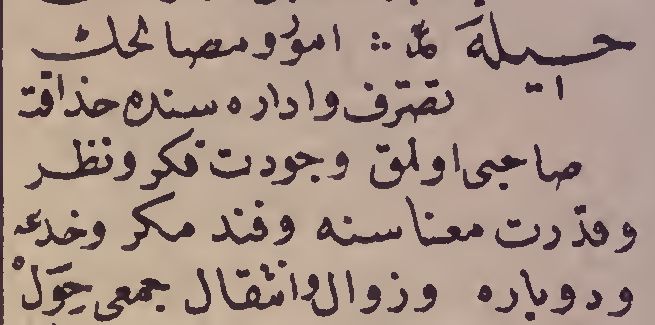 حيله مّد ∴ امور و مصالحك
تصرف و اداره سنده حذاقت
صاحبى اولمق وجودت فكر و نظر
وقدرت معناسنه وفند مكر وخدعه
ودوباره وزوال وانتقال جمعى حِوَلْ